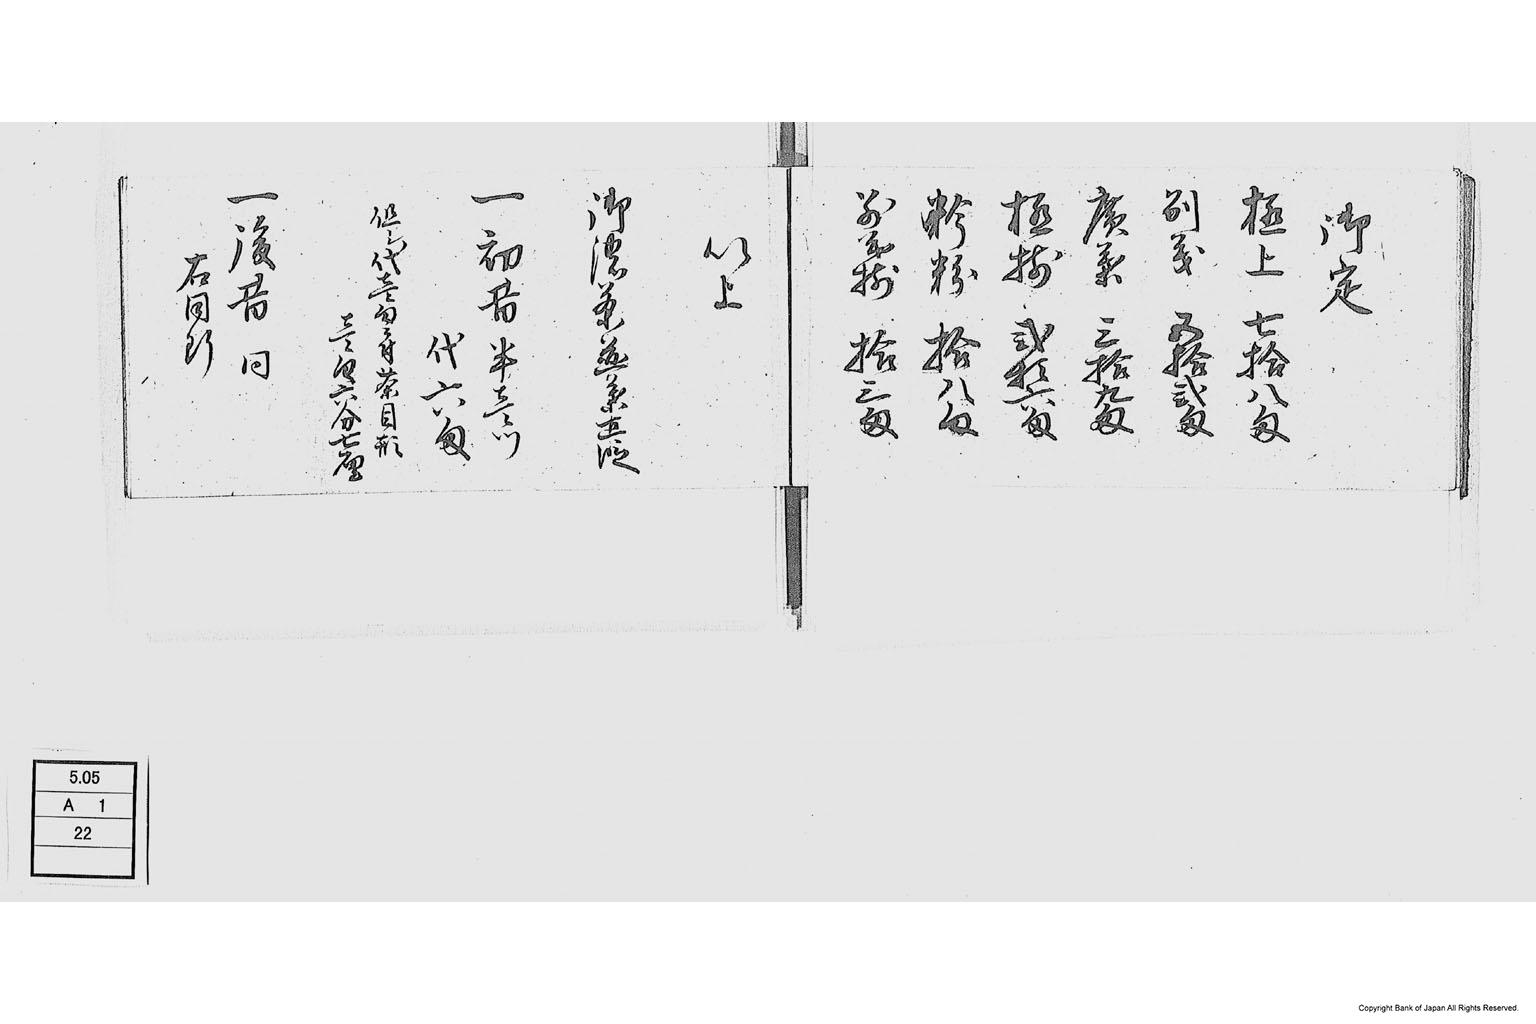 御定
極上 七拾八匁
別義 五拾弐匁
廣葉 三拾九匁
極揃 弐拾六匁
拾八匁
別義揃 拾三匁
以上
御濃茶
一初昔 半
代六匁
代壱匁ニ付茶目形
六分七厘
一後昔 同
右同断
5.05
A 1
22
Copyright Bank of Japan All Rights Reserved.